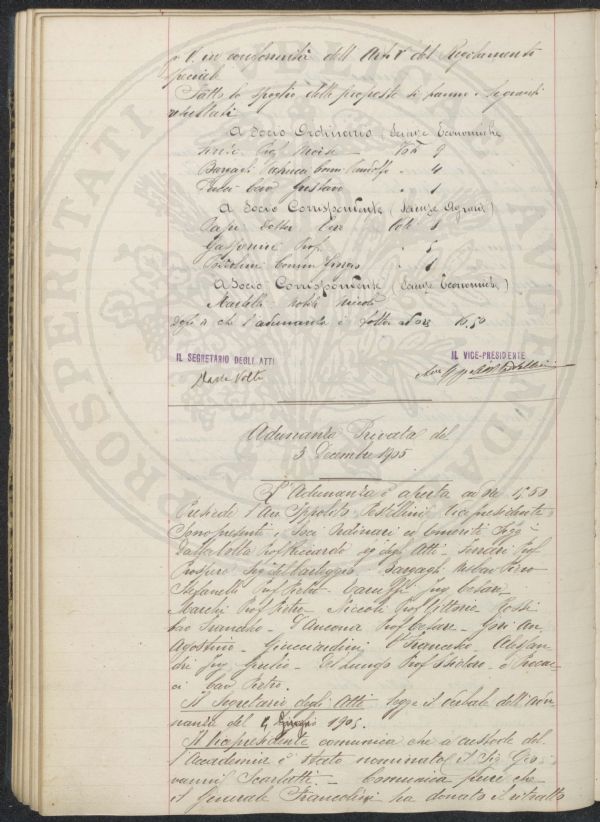 p. V. in conformità dell'Art. V del Regolamento
speciale
Fatto lo spoglio delle proposte si hanno i seguenti
resultati
A Socio Ordinario (Scienze Economiche
Prof. Voti 9
Bargagli Comm. " 4
Cav. Gustavo " 1
A Socio Corrispondente (Scienze Agrarie)
Papi Dottor Voti 1
Gasperini Prof. " 5
Comm. " 1
A Socio Corrispondente (Scienze Economiche)
Martelli nobile Niccolò
Dopo di che l'adunanza è sciolta ad ore 16,50
IL SEGRETARIO DEGLI ATTI
IL VICE-PRESIDENTE
Adunanza Privata del
3 Decembre 1905
L'Adunanza è aperta ad ore 15,50
Presiede l'Avv. Ippolito Pestellini Vicepresidente
Sono presenti i Soci Ordinari ed Emeriti Sigg.
Dalla Volta Prof Riccardo Seg. degli Atti - Ferrari Prof.
Prospero Seg. del Carteggio - Bargagli Piero
Stefanelli Prof Pietro - Ing. Cesare
Marchi Prof Pietro - Niccoli Prof Vittorio - Rossi
- D'Ancona Prof Cesare - Gori
Agostino - Guicciardini C. Francesco - Alessan-
dri Ing Giulio - Del Lungo Prof Isidoro - e Procac-
ci Cav. Pietro.
Il Segretario degli Atti legge il verbale dell'adu-
nanza del 4 Giugno 1905.
Il Vicepresidente comunica che a custode del
l'Accademia è stato nominato il Sig. Gio-
vanni Scarlatti - Comunica pure che
il Generale Francolini ha donato il ritratto
PROSPERITATI PUBLICAE AUGENDAE